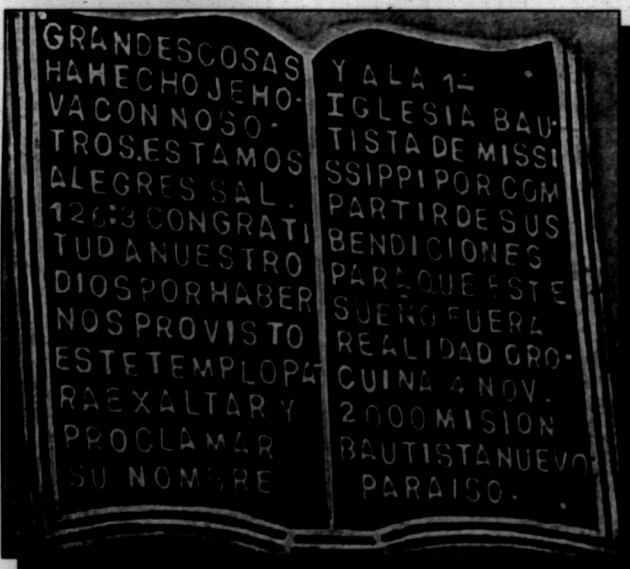 GRANDES COSAS
HA HECHO JEHO-
VA CON NOSO-
TROS. ESTAMOS
ALEGRES SAL.
126:3 CON GRATI
TUD A NUESTRO
DIOS POR HABER
NOS PROVISTO
ESTE TEMPLO PA
RA EXALTAR Y
PROCLAMAR
SU NOMBRE
Y A LA 1a
IGLESIA BAU-
TISTA DE MISSI
SSIPPI POR COM
PARTIR DE SUS
BENDICIONES
PARA QUE ESTE
SUEÑO FUERA
REALIDAD ORO-
CUINA 4 NOV.
2000 MISION
BAUTISTA NUEVO
PARAISO.